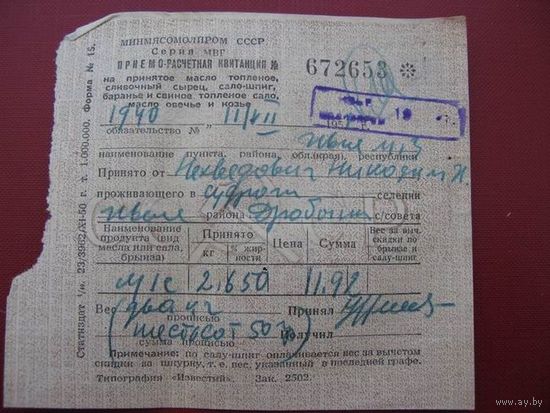 МИНМЯСОМОЛПРОМ СССР
Серия МВГ
ПРИЕМО-РАСЧЕТНАЯ КВИТАНЦИЯ №
672653
на принятое масло топленое,
сливочный сырец, сало-шпиг,
баранье и свиное топленое сало,
масло овечье и козье
1940 " 11/VII
обязательство №
наименование пункта, района, обл. (края), республики
Принято от Никодим И.
проживающего в селении
района с/совета
Наименование продукта (вид масла или сала, брынза)
Принято
кг
% жирности
Цена
Сумма
Вес за вычетом скидки по брынзе и салу-шпиг
м/с 2.650 11.92
Вес (два кг Принял
прописью
шестьсот 50 г) Получил
сумма прописью
Примечание: по салу-шпиг оплачивается вес за вычетом
скидки за шкурку, т. е. вес, указанный в последней графе.
Типография «Известий». Зак. 2502.
Форма № 15.
г. т. 1.000.000.
Статиздат